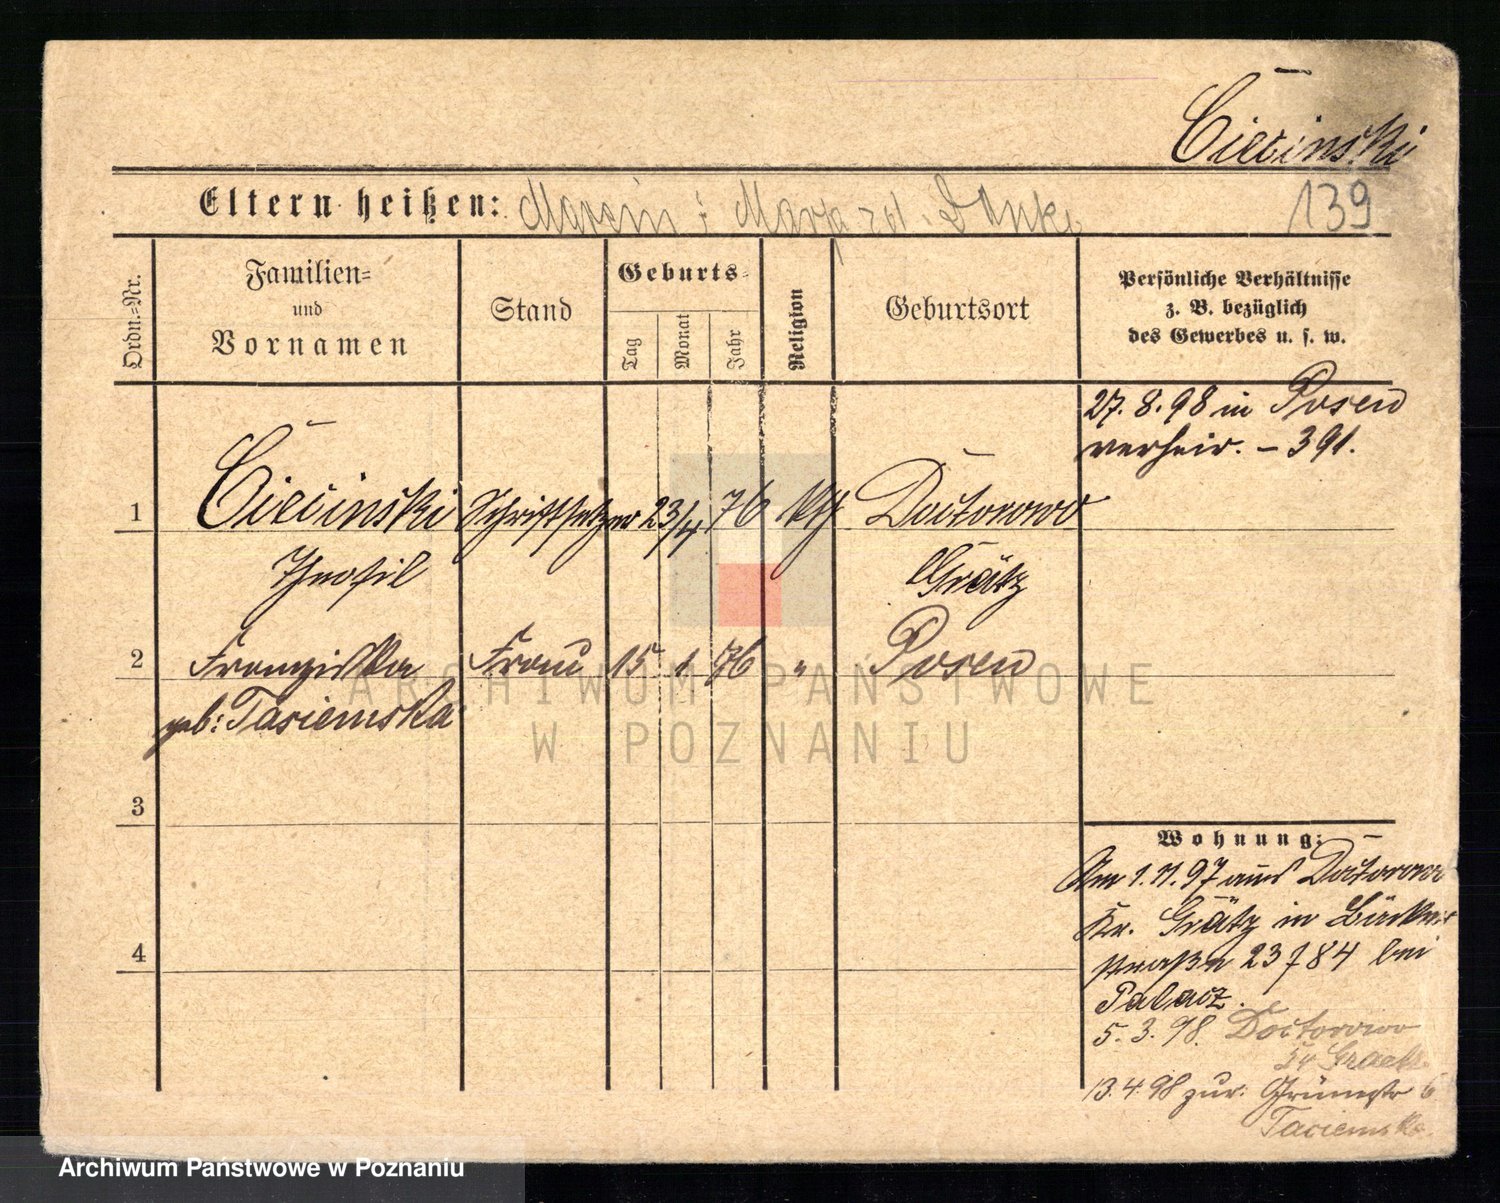 Ciecinski
Eltern heißen: Marcin i Marya zd.
139
Ordn.=Nr.
Familien=
und
Vornamen
Stand
Geburts=
Tag
Monat
Jahr
Religion
Geburtsort
Persönliche Verhältnisse
z. B. bezüglich
des Gewerbes u. s. w.
27. 8. 98 in Posen
verheir. – 391.
1 Ciecinski Schriftsetzer 23/4 76 kth Doctorowo
Theofil Grätz
2 Franziska Frau 15 1 76 " Posen
geb: Tasiemska
3
4
Wohnung:
Am 1. 11. 97 aus Doctorowo
Kr. Grätz in Bäcker
straße 23 784 bei
Palacz.
5. 3. 98. Doctorowo
13. 4. 98 zur: Grünestr 6
Tasiemska
ARCHIWUM PAŃSTWOWE
W POZNANIU
Archiwum Państwowe w Poznaniu